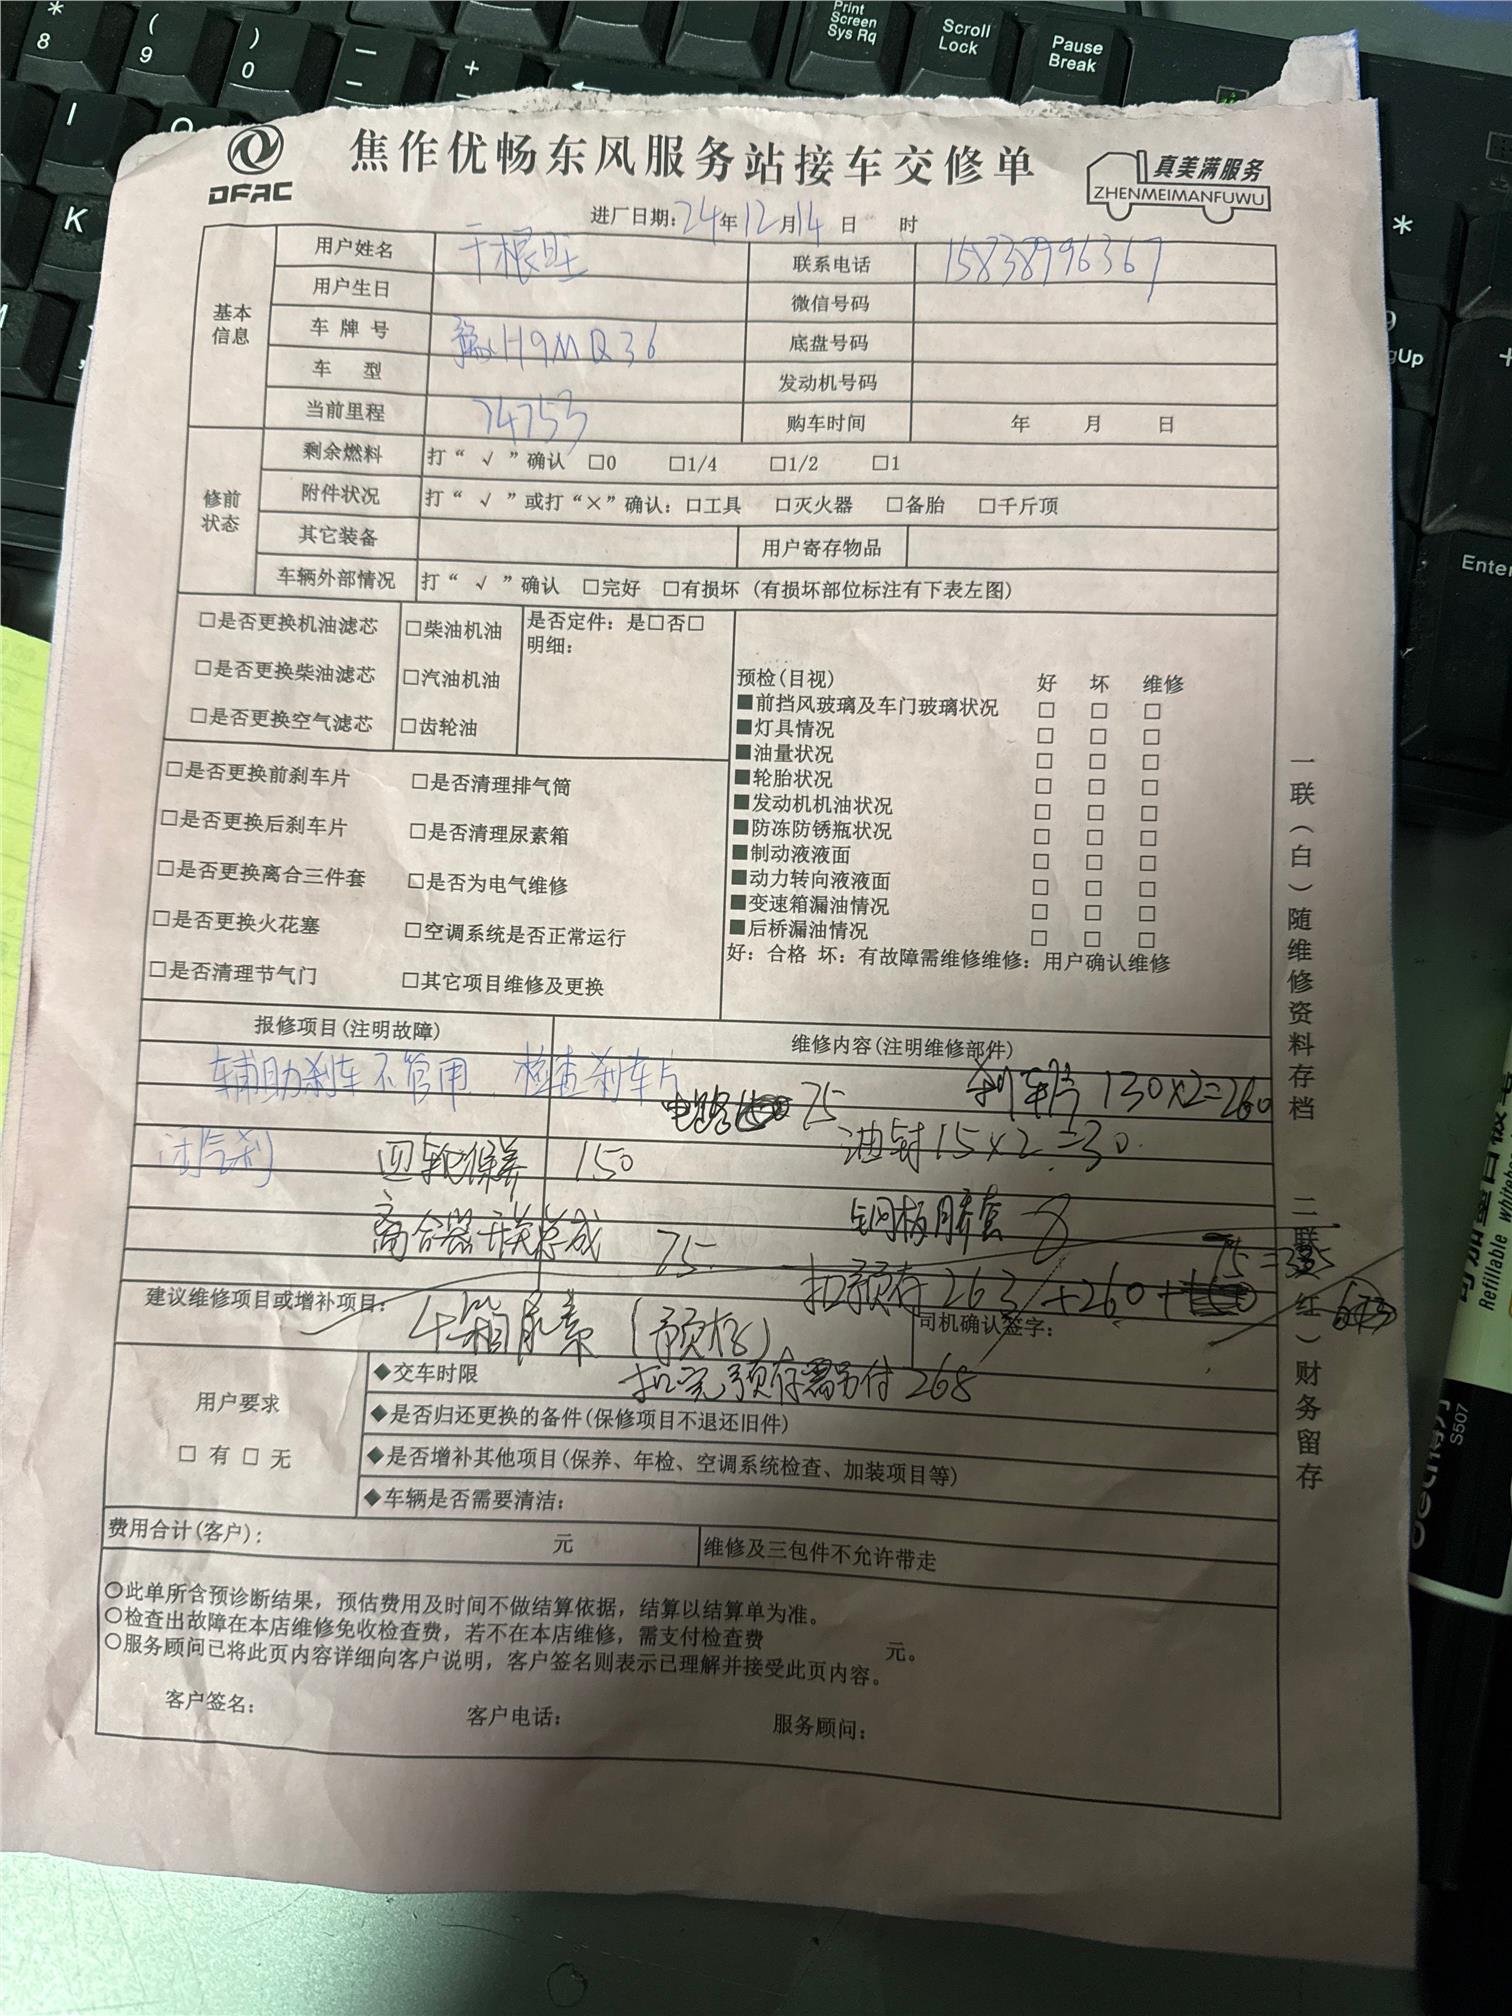 Print Screen Sys Rq
Scroll Lock
Pause Break
* 8
( 9
) 0
I
K
Enter
DFAC
焦作优畅东风服务站接车交修单
真美满服务
ZHENMEIMANFUWU
进厂日期:24年12月14日 时
基本信息
用户姓名 于根旺 联系电话 15838996367
用户生日 微信号码
车牌号 豫H9MQ36 底盘号码
车型 发动机号码
当前里程 74753 购车时间 年 月 日
修前状态
剩余燃料 打“√”确认 □0 □1/4 □1/2 □1
附件状况 打“√”或打“×”确认:□工具 □灭火器 □备胎 □千斤顶
其它装备 用户寄存物品
车辆外部情况 打“√”确认 □完好 □有损坏 (有损坏部位标注有下表左图)
□是否更换机油滤芯 □柴油机油 是否定件:是□否□
明细:
□是否更换柴油滤芯 □汽油机油
□是否更换空气滤芯 □齿轮油
预检(目视) 好 坏 维修
■前挡风玻璃及车门玻璃状况 □ □ □
■灯具情况 □ □ □
■油量状况 □ □ □
■轮胎状况 □ □ □
■发动机机油状况 □ □ □
■防冻防锈瓶状况 □ □ □
■制动液液面 □ □ □
■动力转向液液面 □ □ □
■变速箱漏油情况 □ □ □
■后桥漏油情况 □ □ □
好:合格 坏:有故障需维修维修:用户确认维修
□是否更换前刹车片 □是否清理排气筒
□是否更换后刹车片 □是否清理尿素箱
□是否更换离合三件套 □是否为电气维修
□是否更换火花塞 □空调系统是否正常运行
□是否清理节气门 □其它项目维修及更换
报修项目(注明故障) 维修内容(注明维修部件)
辅助刹车不管用、检查刹车片
电路 75 刹车片 130×2=260
闭气刹 四轮保养 150 油封15×2=30
离合器开关总成 75 钢板胶套 8
扣预存263+260+ 75=
建议维修项目或增补项目: 4箱尿素(预存)
司机确认签字:
扣完预存需另付268
用户要求
□ 有 □ 无
◆交车时限
◆是否归还更换的备件(保修项目不退还旧件)
◆是否增补其他项目(保养、年检、空调系统检查、加装项目等)
◆车辆是否需要清洁:
费用合计(客户): 元 维修及三包件不允许带走
○此单所含预诊断结果,预估费用及时间不做结算依据,结算以结算单为准。
○检查出故障在本店维修免收检查费,若不在本店维修,需支付检查费 元。
○服务顾问已将此页内容详细向客户说明,客户签名则表示已理解并接受此页内容。
客户签名: 客户电话: 服务顾问:
一联(白)随维修资料存档
二联(红)财务留存
Refillable
S507